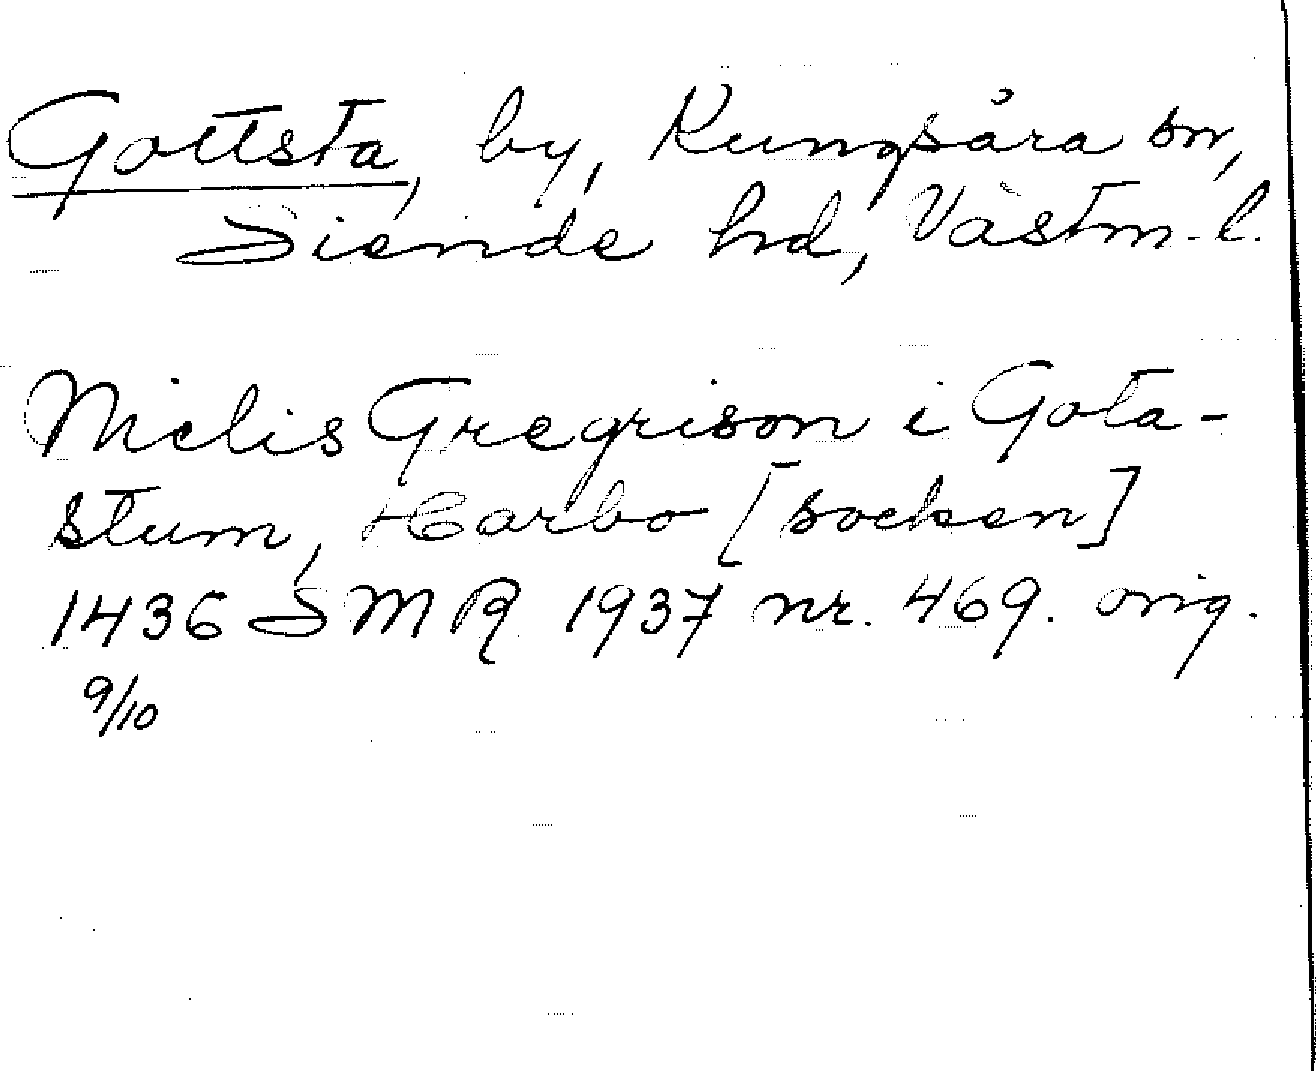 Gottsta, by, Kungsåra sn,
Siende hd, Västm. l.
Niclis Gregrison i Gota-
stum, Harbo [socken]
1436 SMR 1937 nr. 469. orig.
9/10